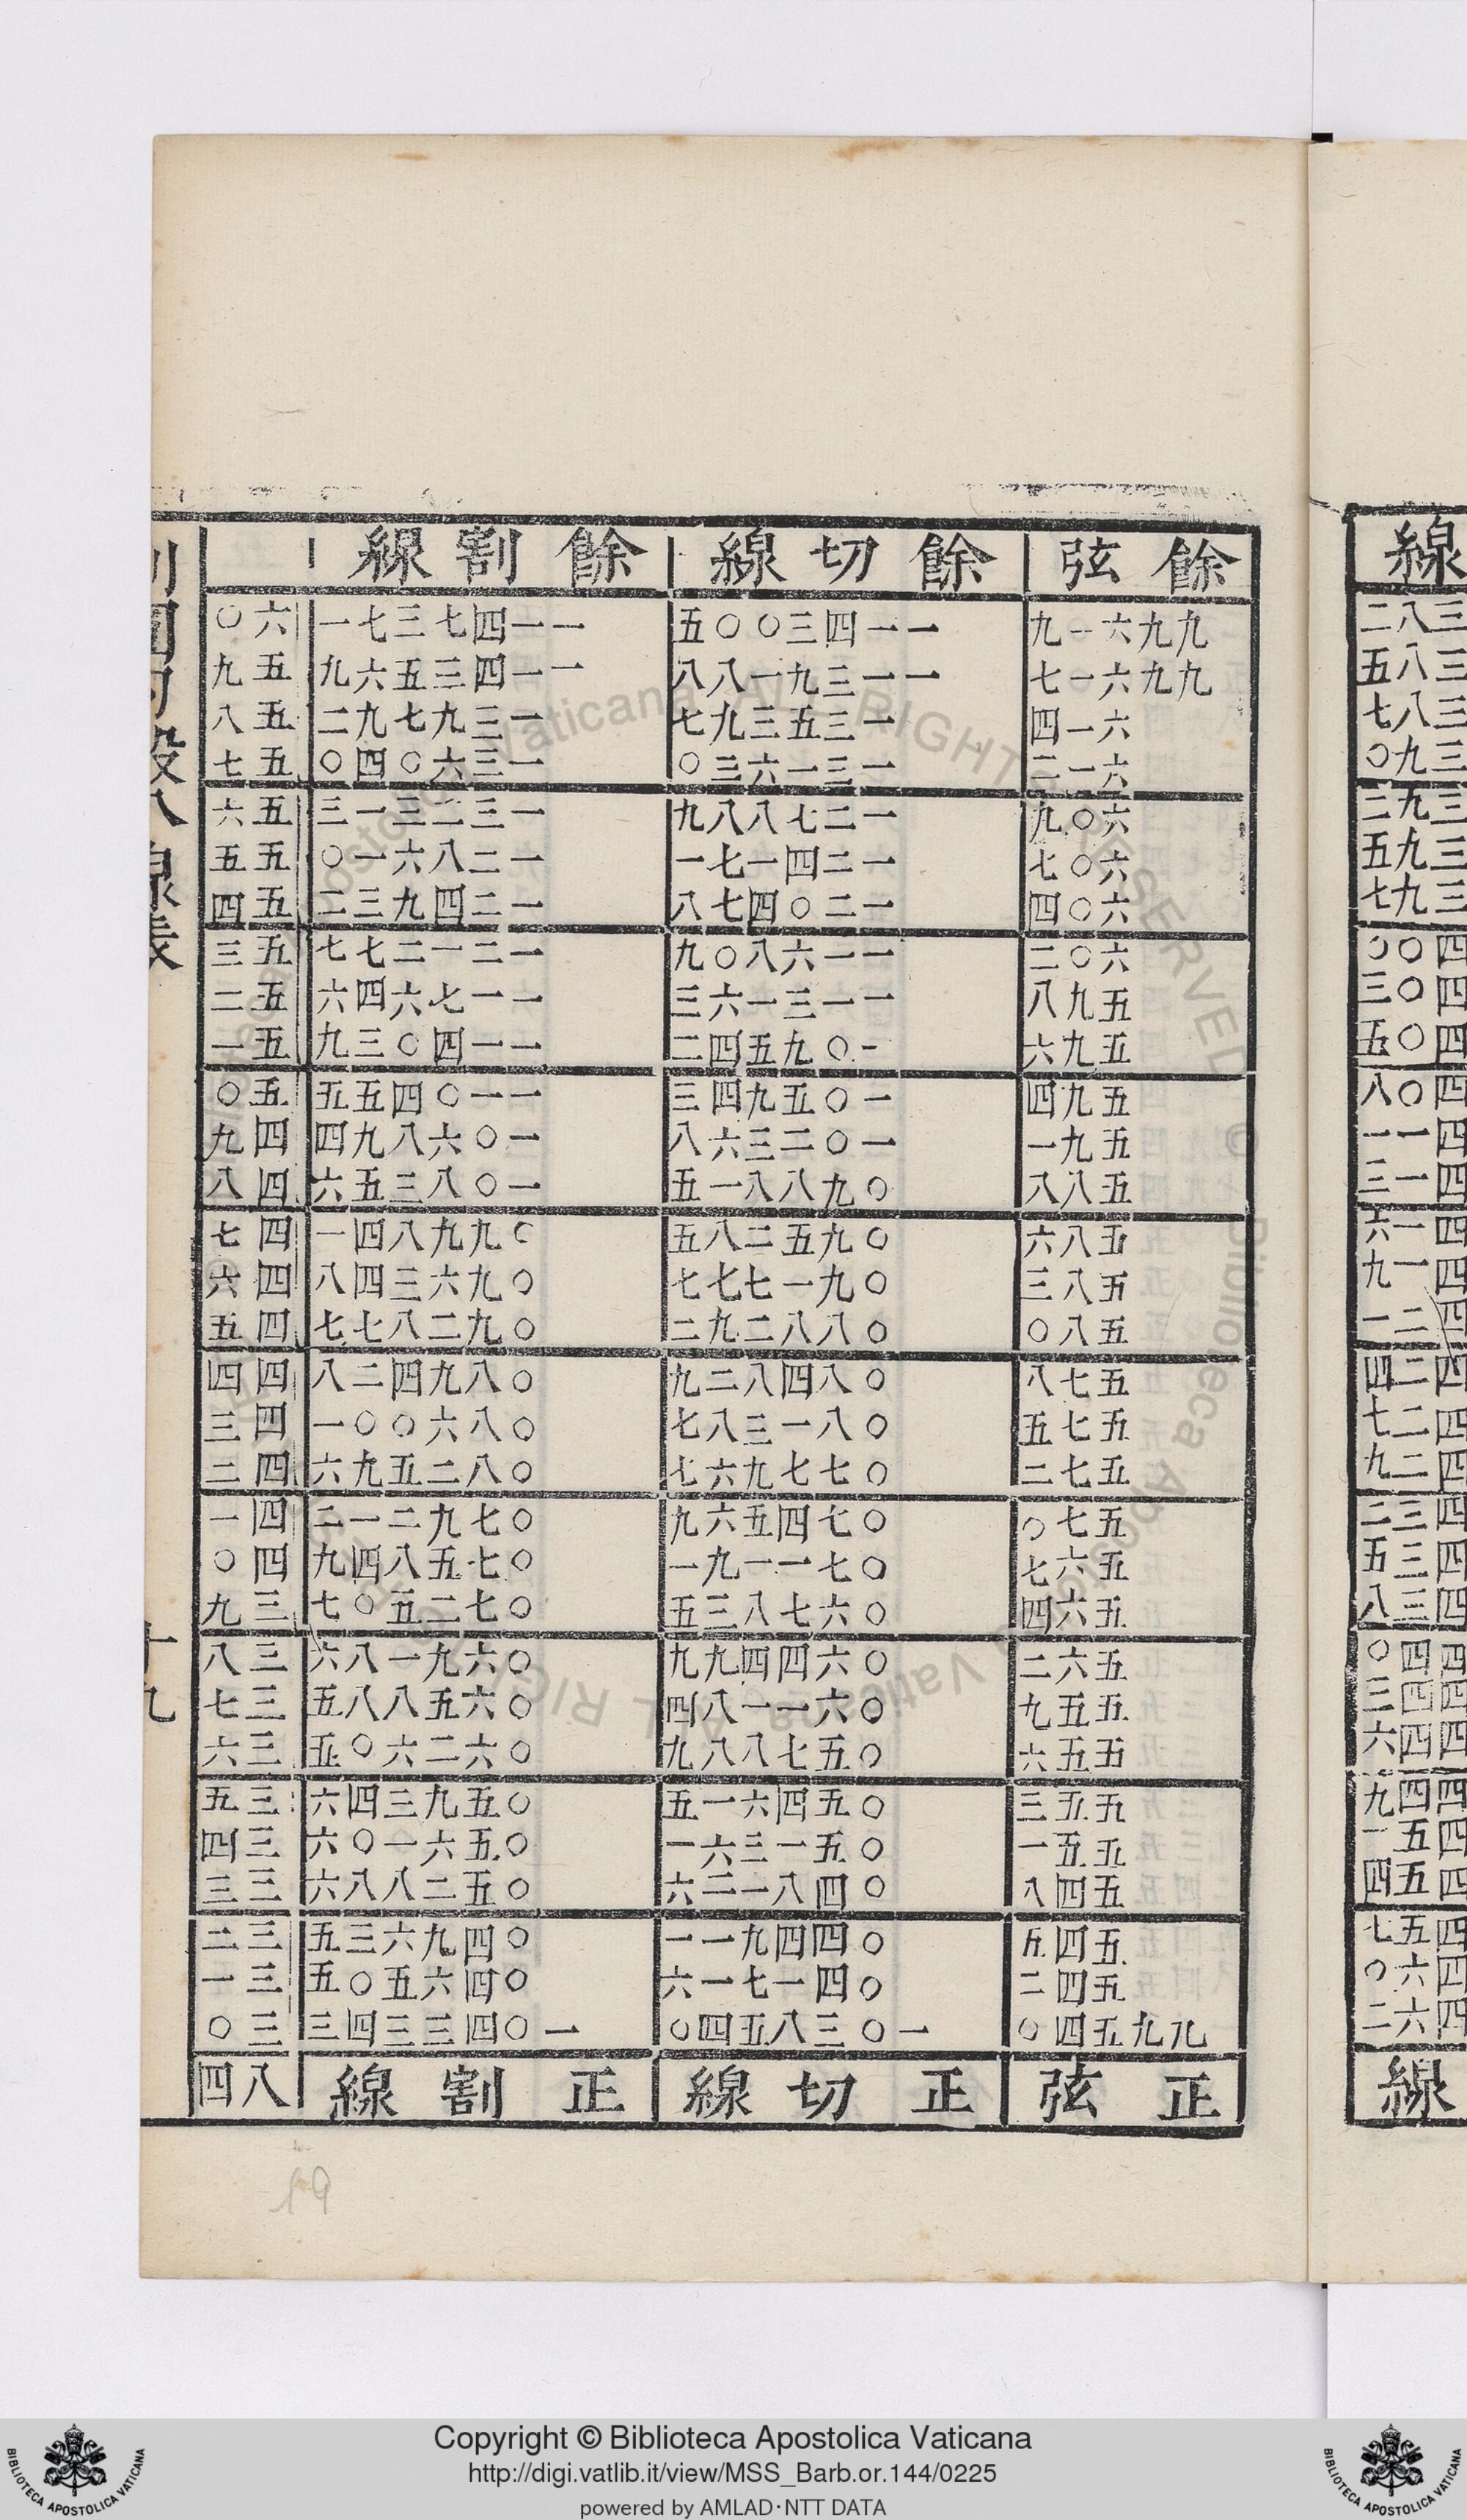 線
三八二
三八五
三八七
三九〇
三九二
三九五
三九七
四〇〇
四〇三
四〇五
四〇八
四一一
四一三
四一六
四一九
四二一
四二四
四二七
四二九
四三二
四三五
四三八
四四〇
四四三
四四六
四四九
四五一
四五四
四五七
四六〇
四六二
線
餘弦 餘切線 餘割線
九九六一九 一一四三〇〇五 一一四七三七一 六〇
九九六一七 一一三九一八八 一一四三五六九 五九
六一四 一三五三九七 一三九七九二 五八
六一二 一三一六三〇 一三六〇四〇 五七
六〇九 一二七八八九 一三二三一三 五六
六〇七 一二四一七一 一二八六一〇 五五
六〇四 一二〇四七八 一二四九三二 五四
六〇二 一一六八〇九 一二一二七七 五三
五九八 一一三一六三 一一七六四六 五二
五九六 一〇九五四二 一一四〇三九 五一
五九四 一〇五九四三 一一〇四五五 五〇
五九一 一〇二三六八 一〇六八九四 四九
五八八 〇九八八一五 一〇八三五六 四八
五八六 〇九五二八五 〇九九八四一 四七
五八三 〇九一七七七 〇九六三四八 四六
五八〇 〇八八二九二 〇九二八七七 四五
五七八 〇八四八二九 〇八九四二八 四四
五七五 〇八一三八七 〇八六〇〇一 四三
五七二 〇七七九六七 〇八二五九六 四二
五七〇 〇七四五六九 〇七九二一二 四一
五六七 〇七一一九一 〇七五八四九 四〇
五六四 〇六七八三五 〇七二五〇七 三九
五六二 〇六四四九九 〇六九一八六 三八
五五九 〇六一一八四 〇六五八八五 三七
五五六 〇五七八八九 〇六二六〇五 三六
五五三 〇五四六一五 〇五九三四六 三五
五五一 〇五一三六一 〇五六一〇六 三四
五四八 〇四八一二六 〇五二八八六 三三
五四五 〇四四九一一 〇四九六三五 三二
五四二 〇四一七一六 〇四六五〇五 三一
九九五四〇 一〇三八五四〇 一〇四三三四三 三〇
正弦 正切線 正割線 八四
割圓勾股八線表
十九
19
Copyright © Biblioteca Apostolica Vaticana
http://digi.vatlib.it/view/MSS_Barb.or.144/0225
powered by AMLAD·NTT DATA
BIBLIOTECA APOSTOLICA VATICANA
BIBLIOTECA APOSTOLICA VATICANA